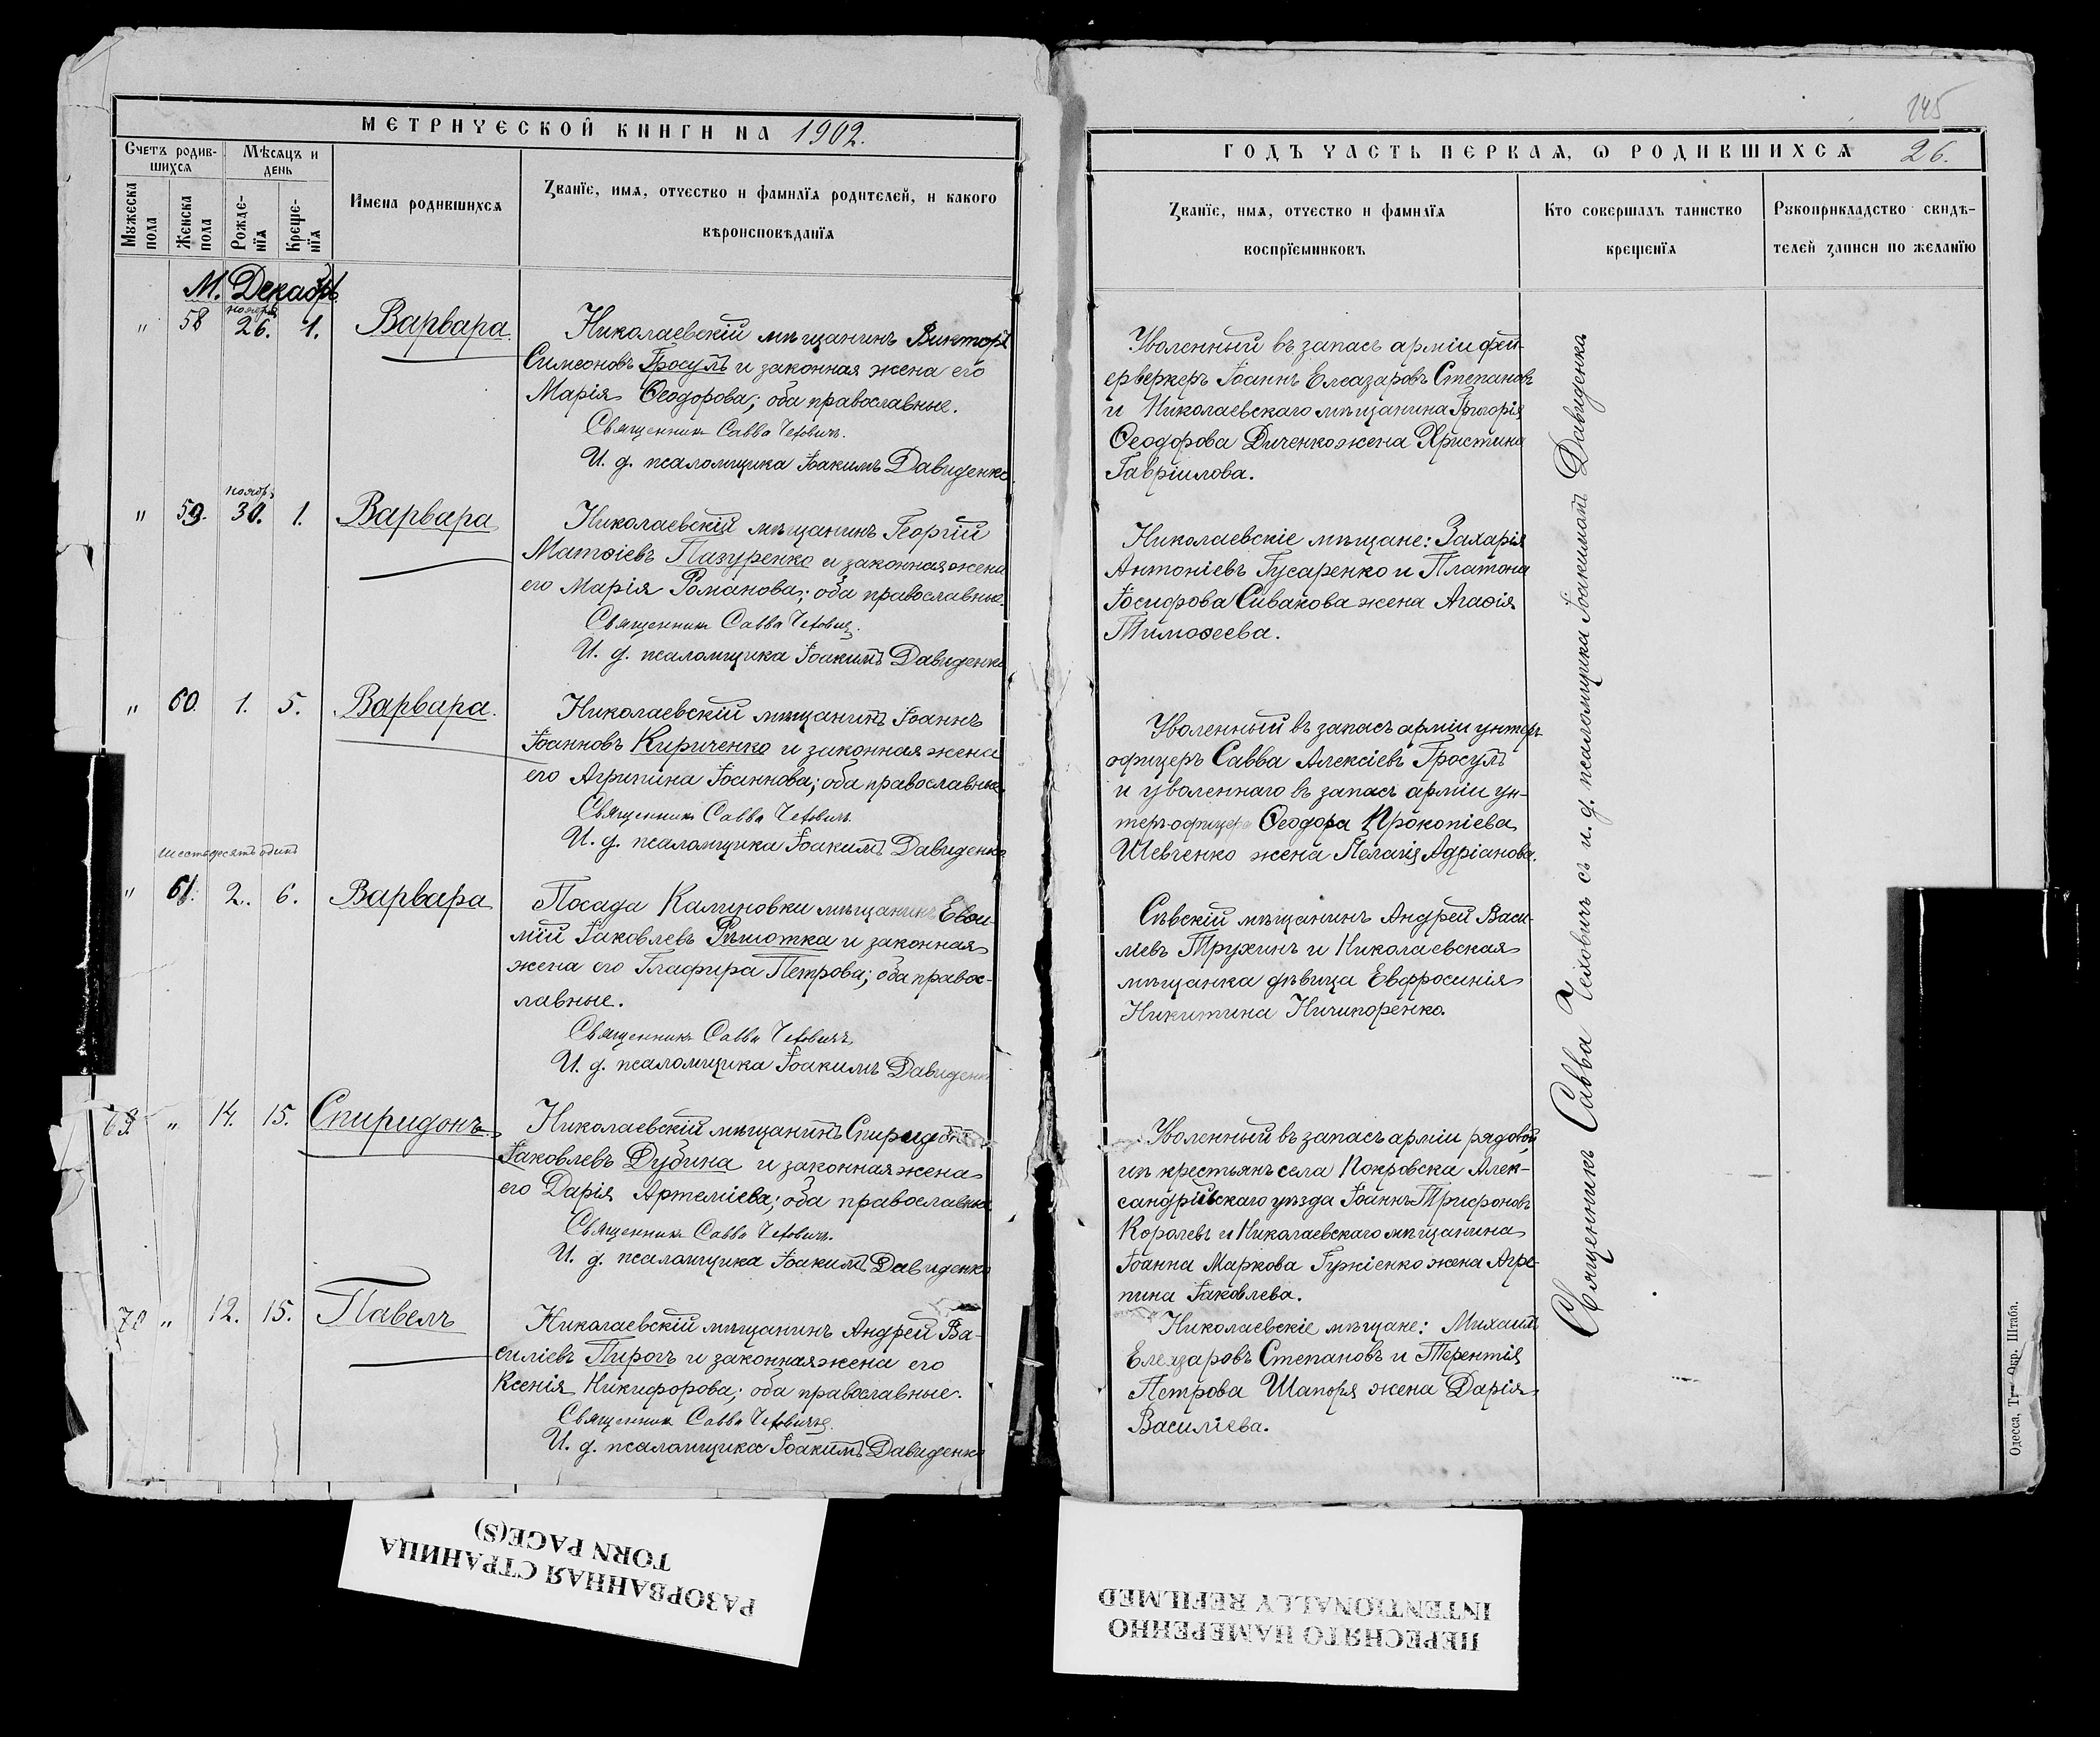 МЕТРИЧЕСКОЙ КНИГИ НА 1902.
Счетъ родив-
шихся
Мѣсяцъ и
день
Мужеска
пола
Женска
пола
Рожде-
нїя
Креще-
нїя
Имена родившихся
Званїе, имя, отчество и фамилїя родителей, и какого
вѣроисповѣданїя
М. Декабрь
ноября
" 58 26. 1. Варвара.
Николаевскій мѣщанинъ Викторъ
Симеоновъ Гросулъ и законная жена его
Марія Ѳеодорова; оба православные.
Священникъ Савва Чеховичъ.
И. д. псаломщика Іоакимъ Давиденко
ноябр.
" 59. 30. 1. Варвара
Николаевскій мѣщанинъ Георгій
Матѳіевъ Пазуренко и законная жена
его Марія Романова; оба православные.
Священникъ Савва Чеховичъ.
И. д. псаломщика Іоакимъ Давиденко
" 60. 1. 5. Варвара.
Николаевскій мѣщанинъ Іоаннъ
Іоанновъ Кириченко и законная жена
его Агрипина Іоаннова; оба православные.
Священникъ Савва Чеховичъ.
И. д. псаломщика Іоакимъ Давиденко
шестьдесятъ одинъ
" 61. 2. 6. Варвара
Посада Калиновки мѣщанинъ Евѳи-
мій Іаковлевъ Рѣшотка и законная
жена его Глафира Петрова; оба правос-
лавные.
Священникъ Савва Чеховичъ
И. д. псаломщика Іоакимъ Давиденко
69. " 14. 15. Спиридонъ
Николаевскій мѣщанинъ Спиридонъ
Іаковлевъ Дубина и законная жена
его Дарія Артеміева; оба православные.
Священникъ Савва Чеховичъ.
И. д. псаломщика Іоакимъ Давиденко
70 " 12. 15. Павелъ
Николаевскій мѣщанинъ Андрей Ва-
силіевъ Пирогъ и законная жена его
Ксенія Никифорова; оба православные.
Священникъ Савва Чеховичъ
И. д. псаломщика Іоакимъ Давиденко
145
ГОДЪ ЧАСТЬ ПЕРВАЯ, Ѡ РОДИВШИХСЯ 26.
Званїе, имя, отчество и фамилїя
воспрїемниковъ
Кто совершалъ таинство
крещенїя
Рукоприкладство свидѣ-
телей записи по желанїю
Уволенный въ запасъ арміи фей-
ерверкеръ Іоаннъ Елеазаровъ Степановъ
и Николаевскаго мѣщанина Григорія
Ѳеодорова Диченко жена Христина
Гавріилова.
Николаевскіе мѣщане: Захарія
Антоніевъ Гусаренко и Платона
Іосифова Сивакова жена Агаѳія
Тимоѳеева.
Уволенный въ запасъ арміи унтеръ-
офицеръ Савва Алексіевъ Гросулъ
и уволеннаго въ запасъ арміи ун-
теръ-офицера Ѳеодора Прокопіева
Шевченко жена Пелагія Адріанова.
Сѣвскій мѣщанинъ Андрей Васи-
лiевъ Трухинъ и Николаевская
мѣщанка дѣвица Евфросинія
Никитина Ничипоренко.
Уволенный въ запасъ арміи рядовой
изъ крестьянъ села Покровска Алек-
сандрійскаго уѣзда Іоаннъ Трифоновъ
Королевъ и Николаевскаго мѣщанина
Іоанна Маркова Гужіенко жена Агри-
пина Іаковлева.
Николаевскіе мѣщане: Михаилъ
Елеазаровъ Степановъ и Терентія
Петрова Шапоря жена Дарія
Василіева.
Священникъ Савва Чеховичъ съ и. д. псаломщика Іоакимомъ Давиденко
Одесса, Тип. Окр. Штаба.
РАЗОРВАННАЯ СТРАНИЦА
TORN PAGE(S)
ПЕРЕСНЯТО НАМЕРЕННО
INTENTIONALLY REFILMED